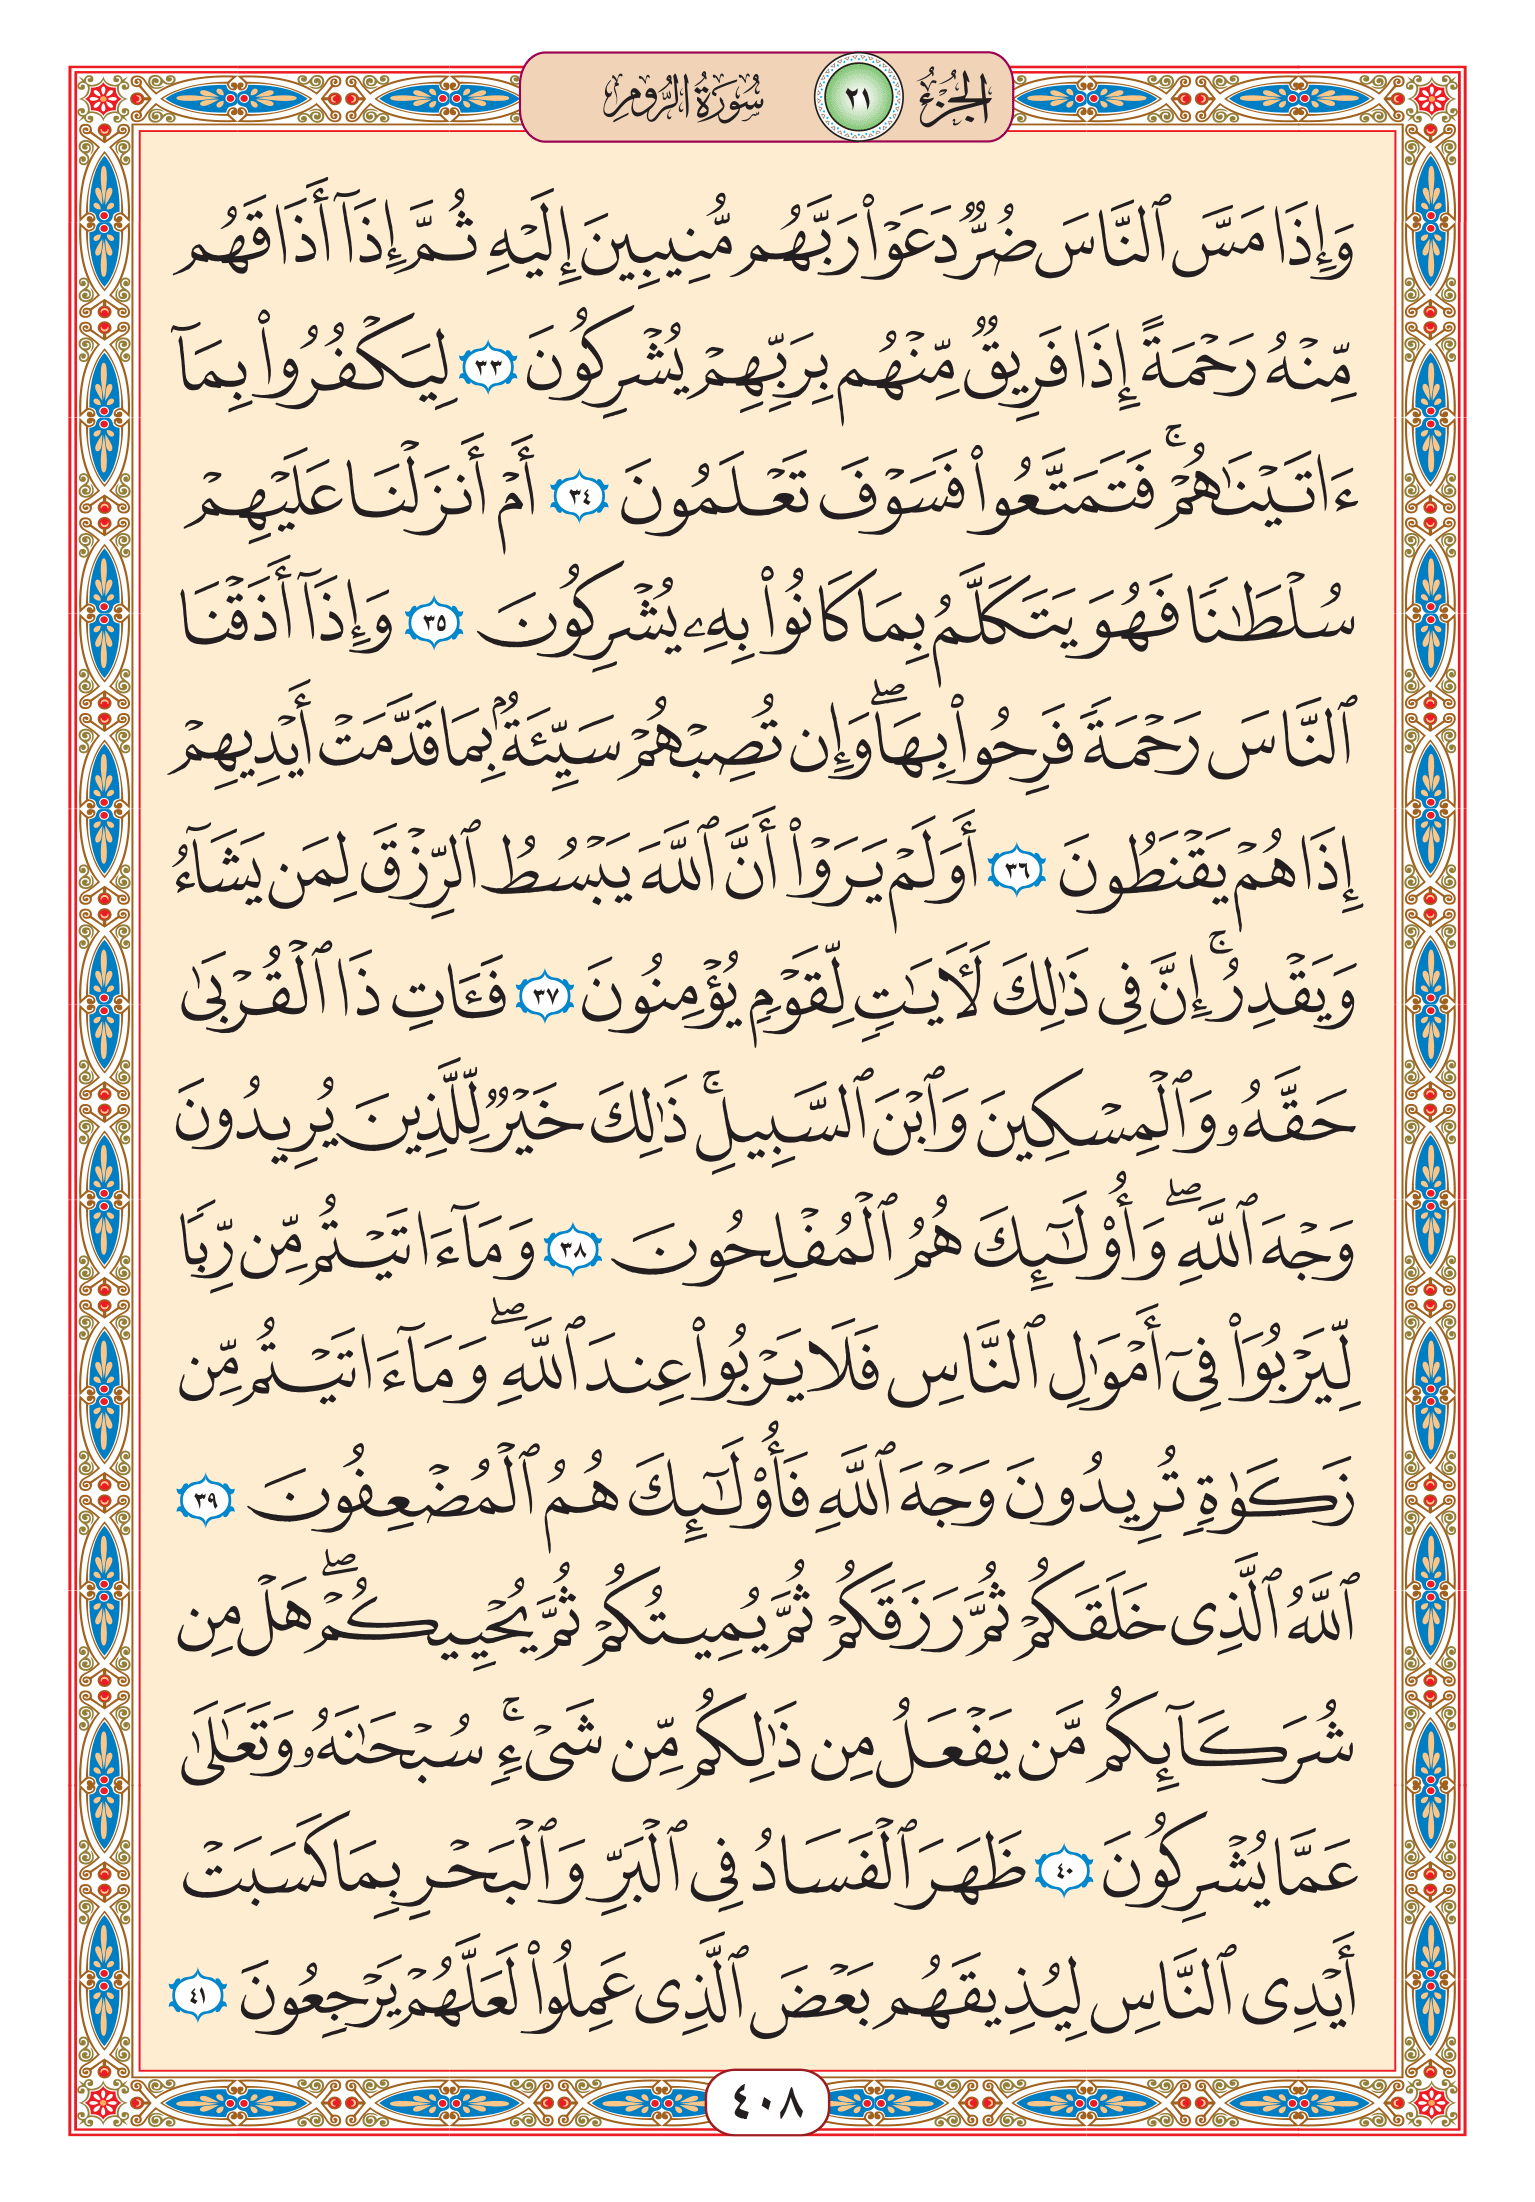 الجزء ٢١ سورة الروم
وَإِذَا مَسَّ ٱلنَّاسَ ضُرٌّ دَعَوْا۟ رَبَّهُم مُّنِيبِينَ إِلَيْهِ ثُمَّ إِذَآ أَذَاقَهُم
مِّنْهُ رَحْمَةً إِذَا فَرِيقٌ مِّنْهُم بِرَبِّهِمْ يُشْرِكُونَ ٣٣ لِيَكْفُرُوا۟ بِمَآ
ءَاتَيْنَٰهُمْ ۚ فَتَمَتَّعُوا۟ فَسَوْفَ تَعْلَمُونَ ٣٤ أَمْ أَنزَلْنَا عَلَيْهِمْ
سُلْطَٰنًا فَهُوَ يَتَكَلَّمُ بِمَا كَانُوا۟ بِهِۦ يُشْرِكُونَ ٣٥ وَإِذَآ أَذَقْنَا
ٱلنَّاسَ رَحْمَةً فَرِحُوا۟ بِهَا ۖ وَإِن تُصِبْهُمْ سَيِّئَةٌۢ بِمَا قَدَّمَتْ أَيْدِيهِمْ
إِذَا هُمْ يَقْنَطُونَ ٣٦ أَوَلَمْ يَرَوْا۟ أَنَّ ٱللَّهَ يَبْسُطُ ٱلرِّزْقَ لِمَن يَشَآءُ
وَيَقْدِرُ ۚ إِنَّ فِى ذَٰلِكَ لَـَٔايَٰتٍ لِّقَوْمٍ يُؤْمِنُونَ ٣٧ فَـَٔاتِ ذَا ٱلْقُرْبَىٰ
حَقَّهُۥ وَٱلْمِسْكِينَ وَٱبْنَ ٱلسَّبِيلِ ۚ ذَٰلِكَ خَيْرٌ لِّلَّذِينَ يُرِيدُونَ
وَجْهَ ٱللَّهِ ۖ وَأُو۟لَٰٓئِكَ هُمُ ٱلْمُفْلِحُونَ ٣٨ وَمَآ ءَاتَيْتُم مِّن رِّبًا
لِّيَرْبُوَا۟ فِىٓ أَمْوَٰلِ ٱلنَّاسِ فَلَا يَرْبُوا۟ عِندَ ٱللَّهِ ۖ وَمَآ ءَاتَيْتُم مِّن
زَكَوٰةٍ تُرِيدُونَ وَجْهَ ٱللَّهِ فَأُو۟لَٰٓئِكَ هُمُ ٱلْمُضْعِفُونَ ٣٩
ٱللَّهُ ٱلَّذِى خَلَقَكُمْ ثُمَّ رَزَقَكُمْ ثُمَّ يُمِيتُكُمْ ثُمَّ يُحْيِيكُمْ ۖ هَلْ مِن
شُرَكَآئِكُم مَّن يَفْعَلُ مِن ذَٰلِكُم مِّن شَىْءٍ ۚ سُبْحَٰنَهُۥ وَتَعَٰلَىٰ
عَمَّا يُشْرِكُونَ ٤٠ ظَهَرَ ٱلْفَسَادُ فِى ٱلْبَرِّ وَٱلْبَحْرِ بِمَا كَسَبَتْ
أَيْدِى ٱلنَّاسِ لِيُذِيقَهُم بَعْضَ ٱلَّذِى عَمِلُوا۟ لَعَلَّهُمْ يَرْجِعُونَ ٤١
٤٠٨